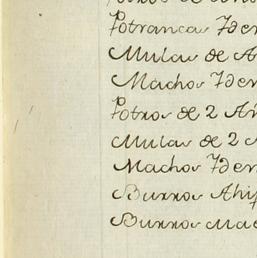 Potranca Idem
Mula de A
Macho Idem
Potro de 2 Añ
Mula de 2 A
Macho Idem
Burro Ahip
Burro Mac